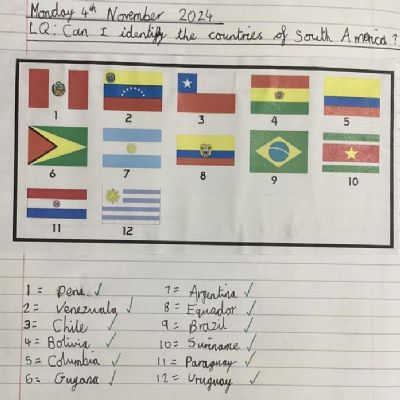 Monday 4th November 2024
LQ: Can I identify the countries of South America?
1 2 3 4 5
6 7 8 9 10
11 12
1 = Peru ✓ 7 = Argentina ✓
2 = Venezuala ✓ 8 = Equador ✓
3 = Chile ✓ 9 = Brazil ✓
4 = Bolivia ✓ 10 = Suriname ✓
5 = Columbia ✓ 11 = Paraguay ✓
6 = Guyana ✓ 12 = Uruguay ✓